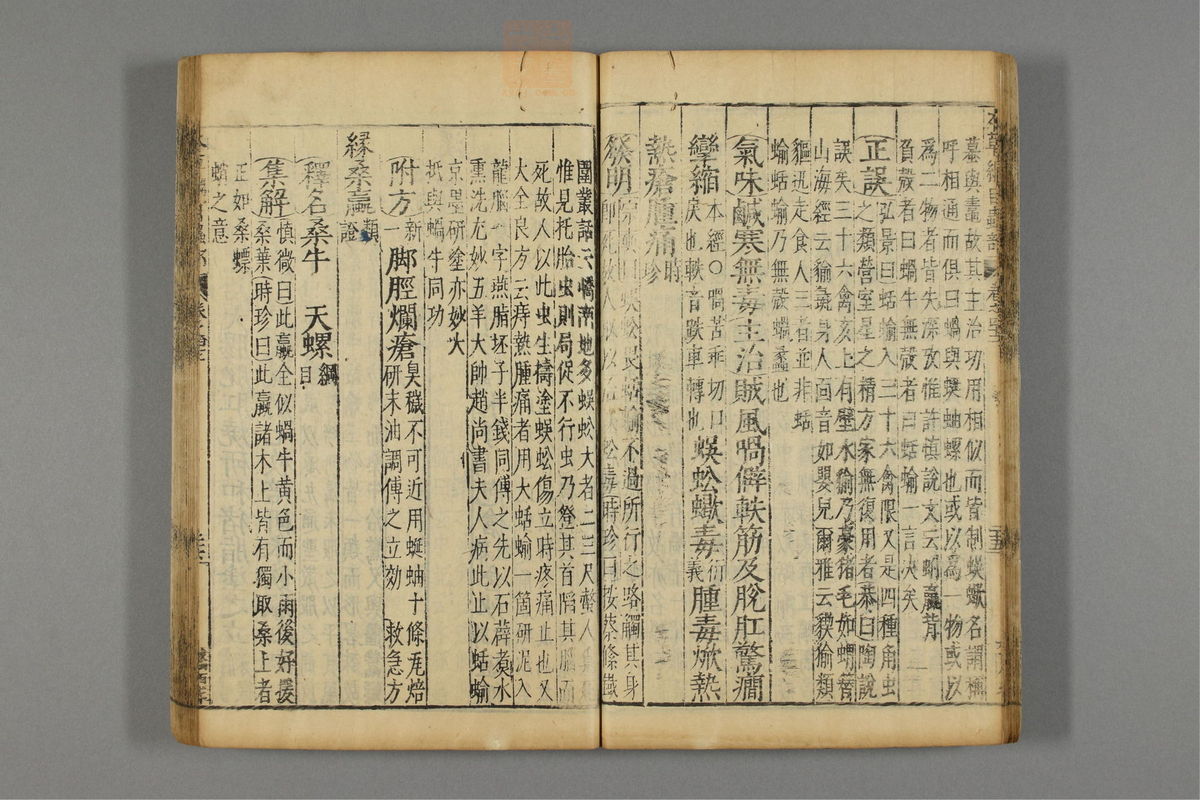 蟇與蟾故其主治功用相似而皆制蜈蠍名謂稱
呼相通而俱曰蝸與蜒蚰螺也或以爲一物或以
爲二物者皆失深攷惟許慎說文云蝸蠃背
負殼者曰蝸牛無殼者曰蛞蝓一言決矣
正誤弘景曰蛞蝓入三十六禽限又是四種角虫
之類營室星之精方家無復用者恭曰陶說
誤矣三十六禽亥上有壁水貐乃豪猪毛如蝟簪
山海經云貐彘身人面音如嬰兒爾雅云猰貐類
貙迅走食人三者並非蛞
蝓蛞蝓乃無殼蝸蠡也
氣味鹹寒無毒主治賊風喎僻軼筋及脫肛驚癇
攣縮本經○喎苦乖切口
戾也軼音跌車轉也
蜈蚣蠍毒衍義
腫毒焮熱
熱瘡腫痛時珍
發明宗奭曰蜈蚣畏蛞蝓不過所行之路觸其身
即死故人以治蜈蚣毒時珍曰按蔡絛鐵
圍叢話云嶠南地多蜈蚣大者二三尺螫人
惟見托胎虫則局促不行虫乃登其首陷其腦而
死故人以此虫生擣塗蜈蚣傷立時疼痛止也又
大全良方云痔熱腫痛者用大蛞蝓一箇研泥入
龍腦一字燕脂坯子半錢同傅之先以石薜煮水
熏洗尤妙五羊大帥趙尚書夫人病此止以蛞蝓
京墨研塗亦妙大
抵與蝸牛同功
附方新一脚脛爛瘡臭穢不可近用蜒蚰十條瓦焙
研末油調傅之立効救急方
緣桑蠃證類
釋名桑牛 天螺綱目
集解慎微曰此蠃全似蝸牛黃色而小雨後好援
桑葉時珍曰此蠃諸木上皆有獨取桑上者
正如桑螵
蛸之意